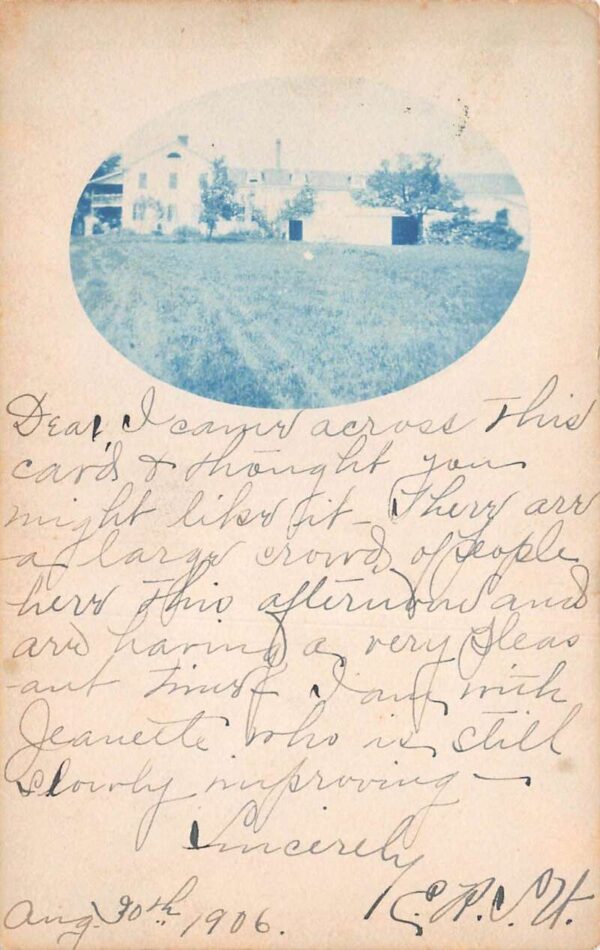 Dear, I came across this
card & thought you
might like it – There are
a large crowd of people
here this afternoon and
are having a very pleas
ant time. I am with
Jeanette who is still
slowly improving –
Sincerely
Aug. 30th 1906.